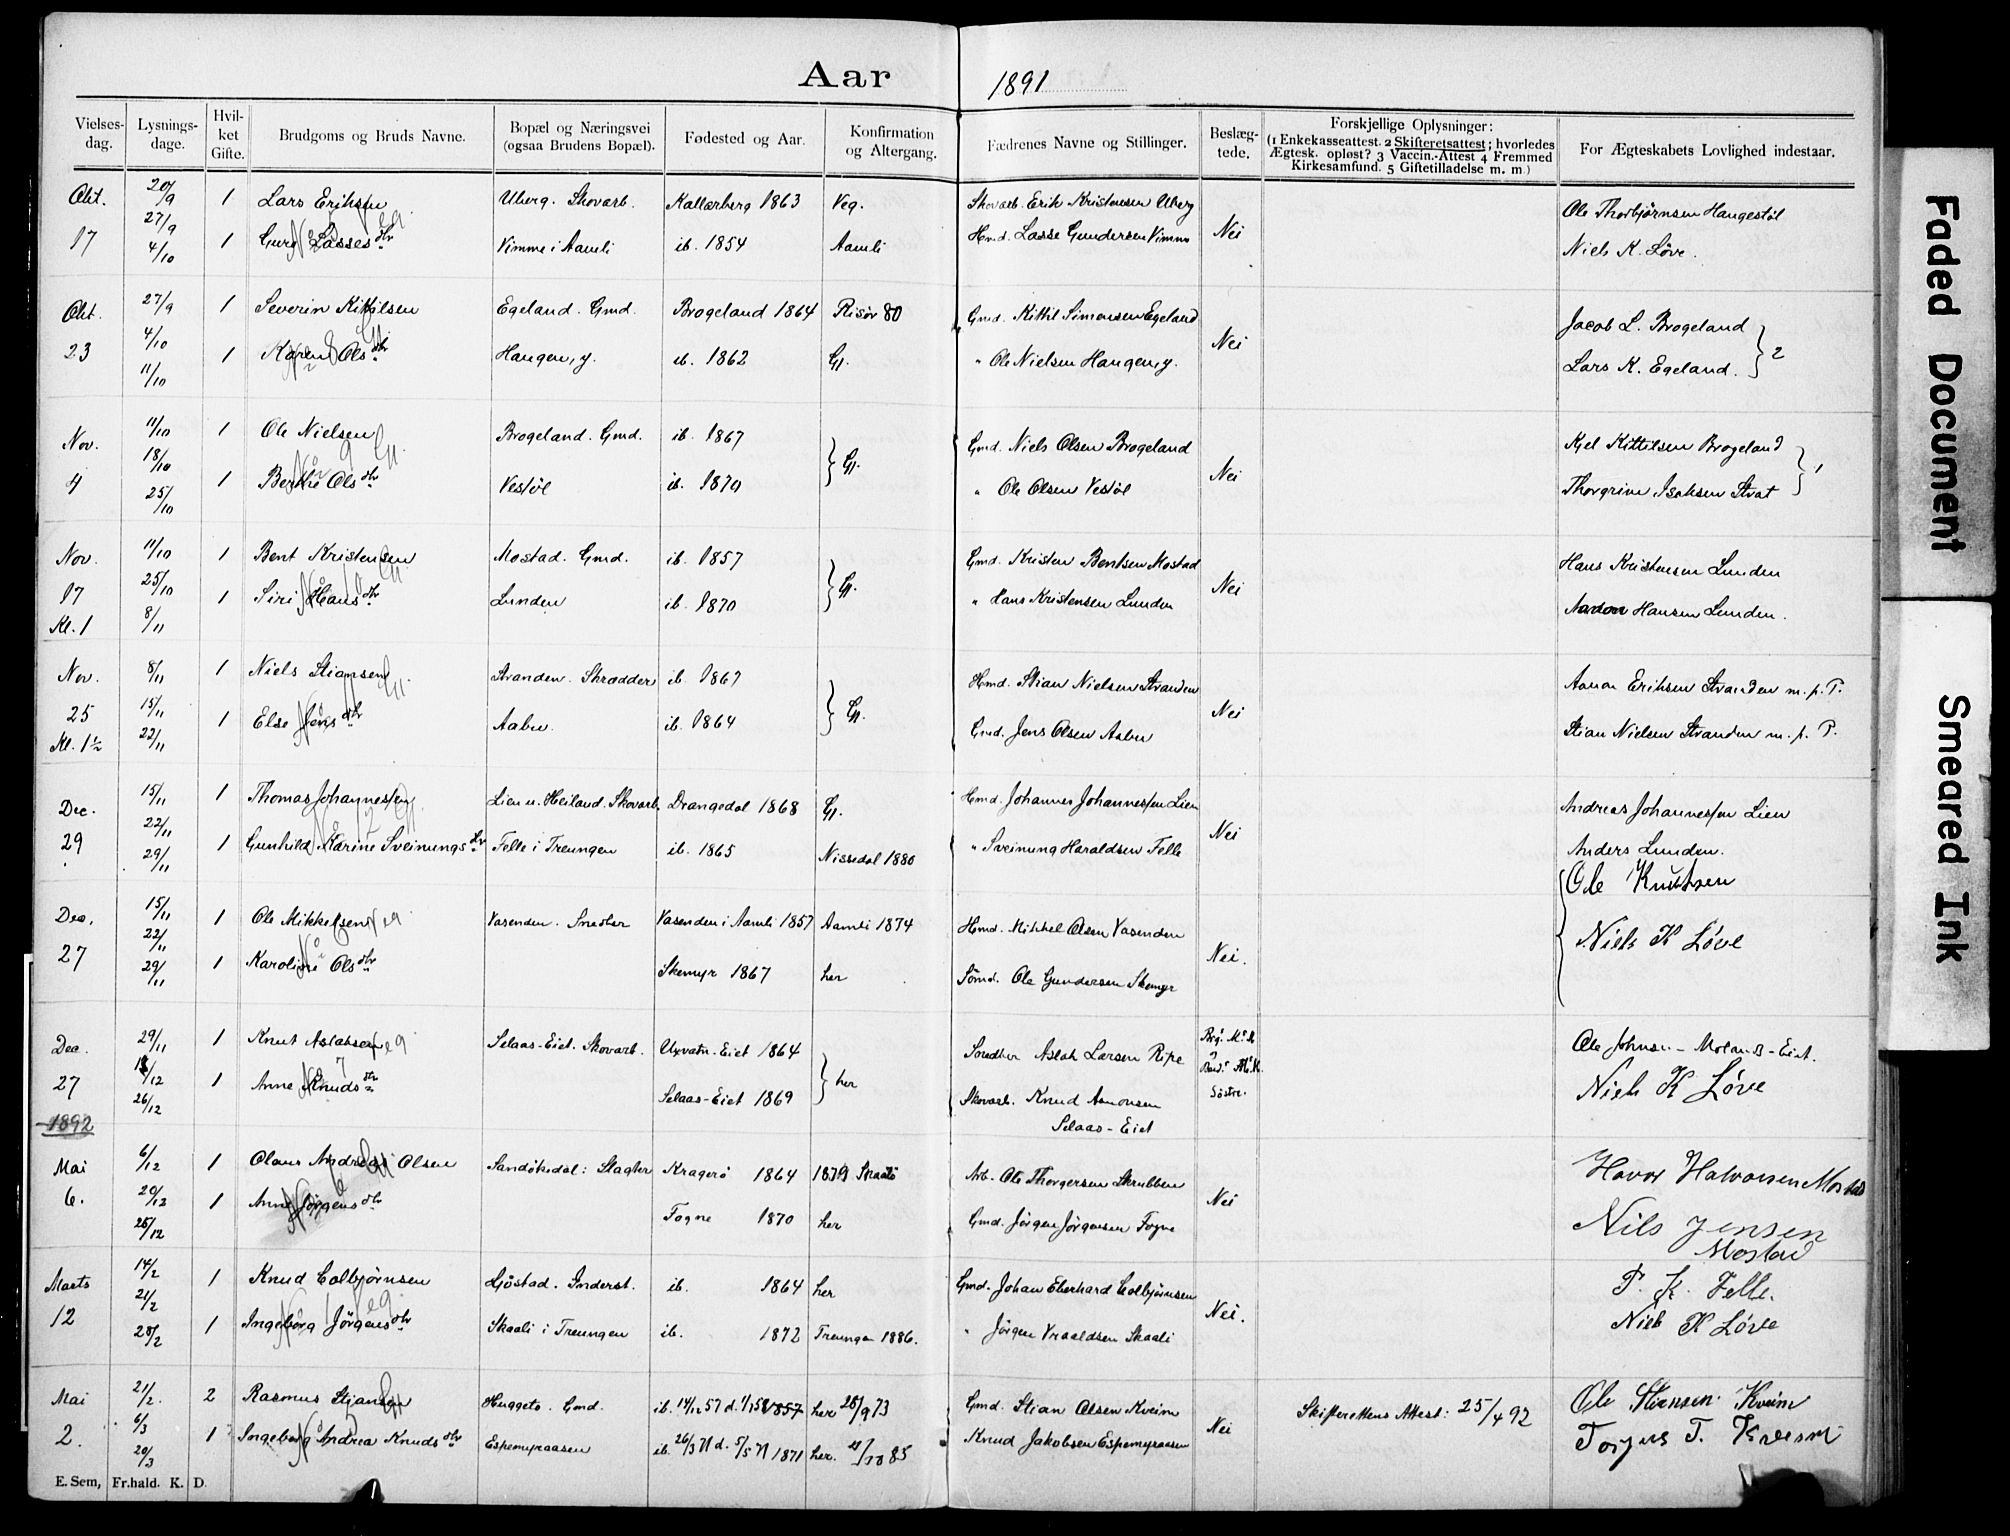 Aar 1891
Vielses-dag. Lysnings-dage. Hvil-ket Gifte. Brudgoms og Bruds Navne. Bopæl og Næringsvei (ogsaa Brudens Bopæl). Fødested og Aar. Konfirmation og Altergang. Fædrenes Navne og Stillinger. Beslæg-tede. Forskjellige Oplysninger: (1 Enkekasseattest. 2 Skifteretsattest; hvorledes Ægtesk. opløst? 3 Vaccin.-Attest 4 Fremmed Kirkesamfund. 5 Giftetilladelse m. m.) For Ægteskabets Lovlighed indestaar.
Okt. 20/9 1 Lars Eriksen Uberg. Skovarb. 1863 Veg. Skovarb. Erik Kristensen Uberg Ole Thorbjørnsen Haugestøl
27/9
17 4/10 1 Guro Lassesdtr Vimme i Aamli ib. 1854 Aamli Hmd. Lasse Gundersen Vimme Nei Niels K. Løve.
Okt. 27/9 1 Severin Kittilsen Egeland. Gmd. Brogeland 1864 Risør 80 Gmd. Kittil Simonsen Egeland Jacob L. Brogeland
4/10
23 11/10 1 Karen Olsdtr Haugen, y. ib. 1862 Gj. " Ole Nielsen Haugen, y. Nei Lars K. Egeland. } 2
Nov. 11/10 1 Ole Nielsen Brogeland. Gmd. ib. 1867 Gmd. Niels Olsen Brogeland Kjel Kittilsen Brogeland
18/10
4 25/10 1 Berthe Olsdtr Vestøl ib. 1870 } Gj. " Ole Olsen Vestøl Nei Thorgrim Isaksen Strat } 1
Nov. 11/10 1 Bent Kristensen Mostad. Gmd. ib. 1857 Gmd. Kristen Bentsen Mostad Hans Kristensen Lunden
17 25/10 1 Siri Hansdtr Lunden ib. 1870 } Gj. " Hans Kristensen Lunden Nei Hansen Lunden.
Kl. 1 8/11
Nov. 8/11 1 Niels Stiansen Stranden. Skrædder ib. 1867 Hmd. Stian Nielsen Stranden Aanon Eriksen Stranden m. p. P.
25 15/11 1 Else Jensdtr Aabu. ib. 1864 } Gj. Gmd. Jens Olsen Aabu Nei Stian Nielsen Stranden m. p. P.
Kl. 1½ 22/11
Dec. 15/11 1 Thomas Johannessen Lien u. Heiland. Skovarb. Drangedal 1868 Gj. Hmd. Johannes Johannessen Lien Andreas Johannessen Lien
22/11
29 29/11 1 Gunhild Karine Sveinungsdtr Felle i Treungen ib. 1865 Nissedal 1880 " Sveinung Haraldsen Felle Nei Anders Lunden.
Dec. 15/11 1 Ole Mikkelsen Vasenden. Smedker Vasenden i Aamli 1857 Aamli 1874 Hmd. Mikkel Olsen Vasenden { Ole Knutsen
22/11
27 29/11 1 Karoline Olsdtr Skemyr 1867 her Sømd. Ole Gundersen Skemyr Nei. Niels K Løve
Dec. 29/11 1 Knut Aslaksen Selaas-Eiet. Skovarb. 1864 Aslak Larsen Ripe Ole Johnsen-Molands-Eiet.
27 /12 1 Anne Knudsdtr Selaas-Eiet 1869 } her Skovarb. Knud Aanonsen Selaas-Eiet Søstre. Niels K Løve
26/12
1892
Mai 6/12 1 Olaus Andreas Olsen Sandökedal: Slagter Kragerø 1864 1879 Skaatö Arb. Ole Thorgersen Skrubben Havor Halvorsen Mostad
6. 20/12 1 Anne Jørgensdtr Fogne 1870 her Gmd. Jørgen Jørgensen Fogne Nei Nils Jensen Mostad
26/12
Marts 14/2 1 Knud Colbjørnsen Gjøstad. Inderst. ib. 1864 her Gmd. Johan Eberhard Colbjørnsen P. K. Felle.
21/2
12 28/2 1 Ingeborg Jørgensdtr Skaali i Treungen ib. 1872 Treungen 1886. " Jørgen Vraaldsen Skaali Nei. Niels K Løve
Mai 21/2 2 Rasmus Stjansen Huggeto. Gmd. ib. 14/12 57 d. 1/1 58 1857 her 28/9 73 Gmd. Stian Olsen Kveim Skifterettens Attest: 25/4 92 Ole Stiansen Kveim
6/3
2. 20/3 1 Ingeborg Andrea Knudsdtr Espemyraasen ib. 26/3 71 d. 5/5 71 1871 her. /10 85 Knud Jakobsen Espemyraasen Nei Torjus T. Kveim
E. Sem, Fr.hald. K. D.
Faded Document
Smeared Ink